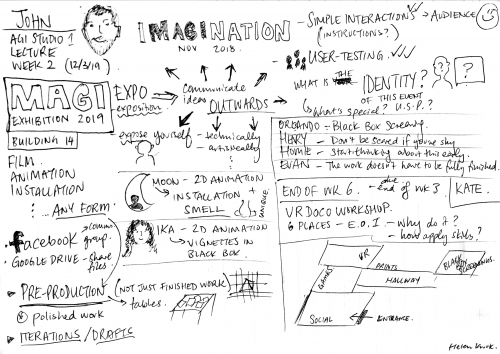 JOHN
AGI STUDIO 1
LECTURE
WEEK 2 (12/3/19)
MAGI
EXHIBITION 2019
BUILDING 14
FILM
ANIMATION
INSTALLATION
... ANY FORM
facebook → comms group.
GOOGLE DRIVE - share files
PRE-PRODUCTION
polished work
ITERATIONS / DRAFTS
IMAGINATION
NOV 2018.
communicate ideas
OUTWARDS
EXPO
exposition
expose yourself
- technically
- artistically
MOON - 2D ANIMATION
INSTALLATION +
SMELL
IKA - 2D ANIMATION
VIGNETTES IN
BLACK BOX.
(NOT JUST FINISHED WORK)
tables.
- SIMPLE INTERACTIONS → AUDIENCE
(INSTRUCTIONS?)
USER-TESTING
WHAT IS THE IDENTITY?
OF THIS EVENT
What's special? U.S.P.?
?
ORLANDO - Black Box Screening.
HENRY - Don't be scared if you're shy
HOWIE - Start thinking about this early.
EVAN - The work doesn't have to be fully finished.
END OF WK 6. → due end of wk 3.
KATE.
VR DOCO WORKSHOP.
6 PLACES - E.O.I. - why do it?
- how apply skills?
VR
GAMES
PRINTS
HALLWAY
BLACK BOX
SOCIAL
ENTRANCE.